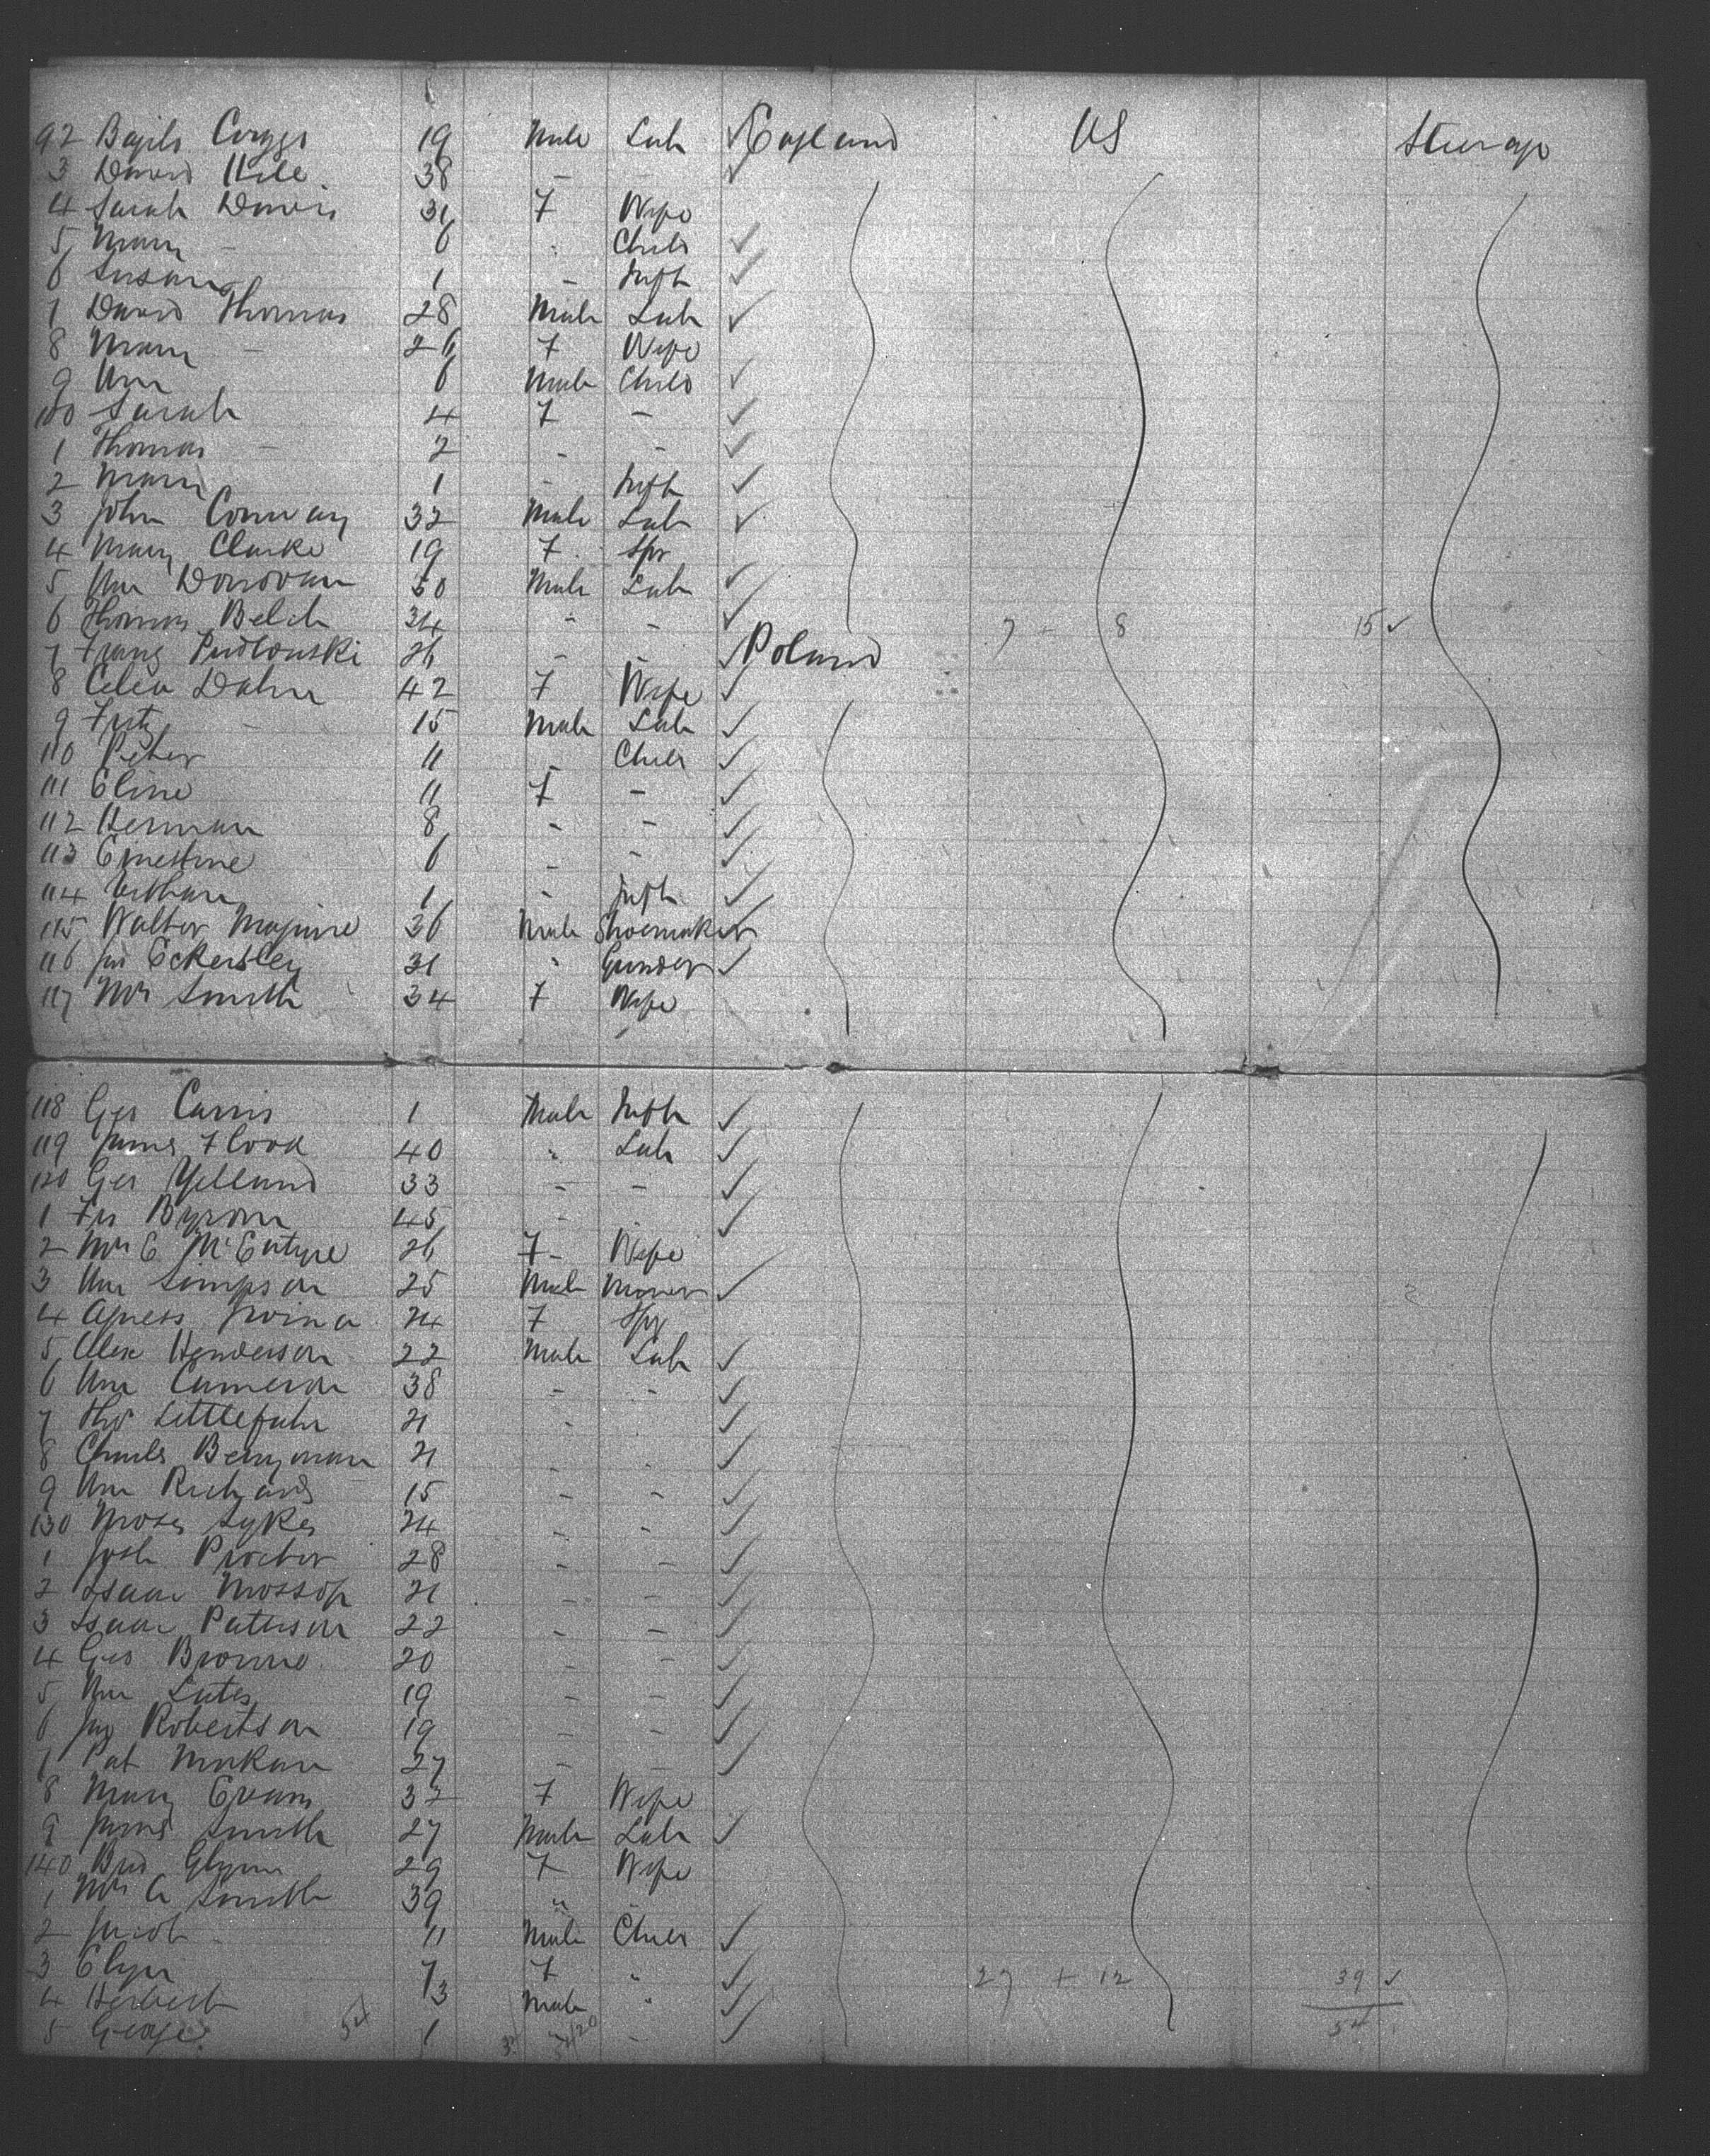 92 19 Male Lab England US Steerage
3 David 38 - -
4 Sarah Davis 31 F Wife
5 Mary - 6 " Child
6 Susan 1 - Inft
7 David Thomas 28 Male Lab
8 Mary - 26 F Wife
9 Wm 6 Male Child
100 Sarah 4 F -
1 Thomas - 2 - -
2 Mary 1 - Inft
3 John Conway 32 Male Lab
4 Mary Clarke 19 F Spr
5 Wm Donovan 50 Male Lab
6 Thomas Belch 34 " - 7 - 8 15
7 Franz Pudlowski 26 - - Poland
8 Dahn 42 F Wife
9 Fritz - 15 Male Lab
110 Peter 11 - Child
111 Eline 11 F -
112 Herman 8 - -
113 Ernestine 6 - -
114 1 - Inft
115 Walter Maguire 36 Male Shoemaker
116 Jas Eckersley 31 " Grinder
117 Mrs Smith 34 F Wife
118 Geo 1 Male Inft
119 James Flood 40 " Lab
120 Geo Yelland 33 - -
1 Byrom 45 - -
2 Mrs E McEntyre 26 F - Wife
3 Wm Simpson 25 Male Miner
4 Agness 24 F Spr
5 Alex Henderson 22 Male Lab
6 Wm Cameron 38 - -
7 Thos 21 -
8 Charles Berryman 21 - -
9 Wm Richards 15 - -
130 Moses Sykes 24 - -
1 Josh Procter 28 - -
2 Isaac Mossop 21 - -
3 Isaac Paterson 22 - -
4 Geo Browne 20 - -
5 Wm 19 - -
6 Robertson 19 - -
7 Pat 27 - -
8 Mary Evans 32 F Wife
9 James Smith 27 Male Lab
140 Glynn 29 F Wife
1 Mrs Smith 39 " "
2 Jacob 11 Male Child
3 7 F " 27 + 12 39
4 Herbert 3 Male " 54
5 George 54 1 - -